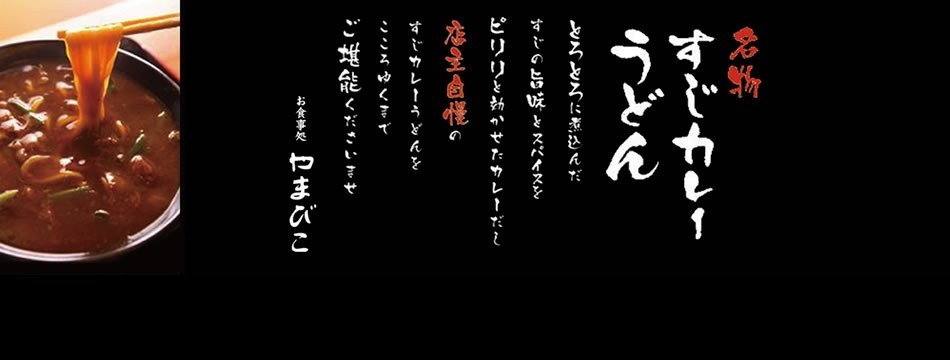 名物
すじカレー
うどん
とろとろに煮込んだ
すじの旨味とスパイスを
ピリリと効かせたカレーだし
店主自慢の
すじカレーうどんを
こころゆくまで
ご堪能くださいませ
お食事処 やまびこ